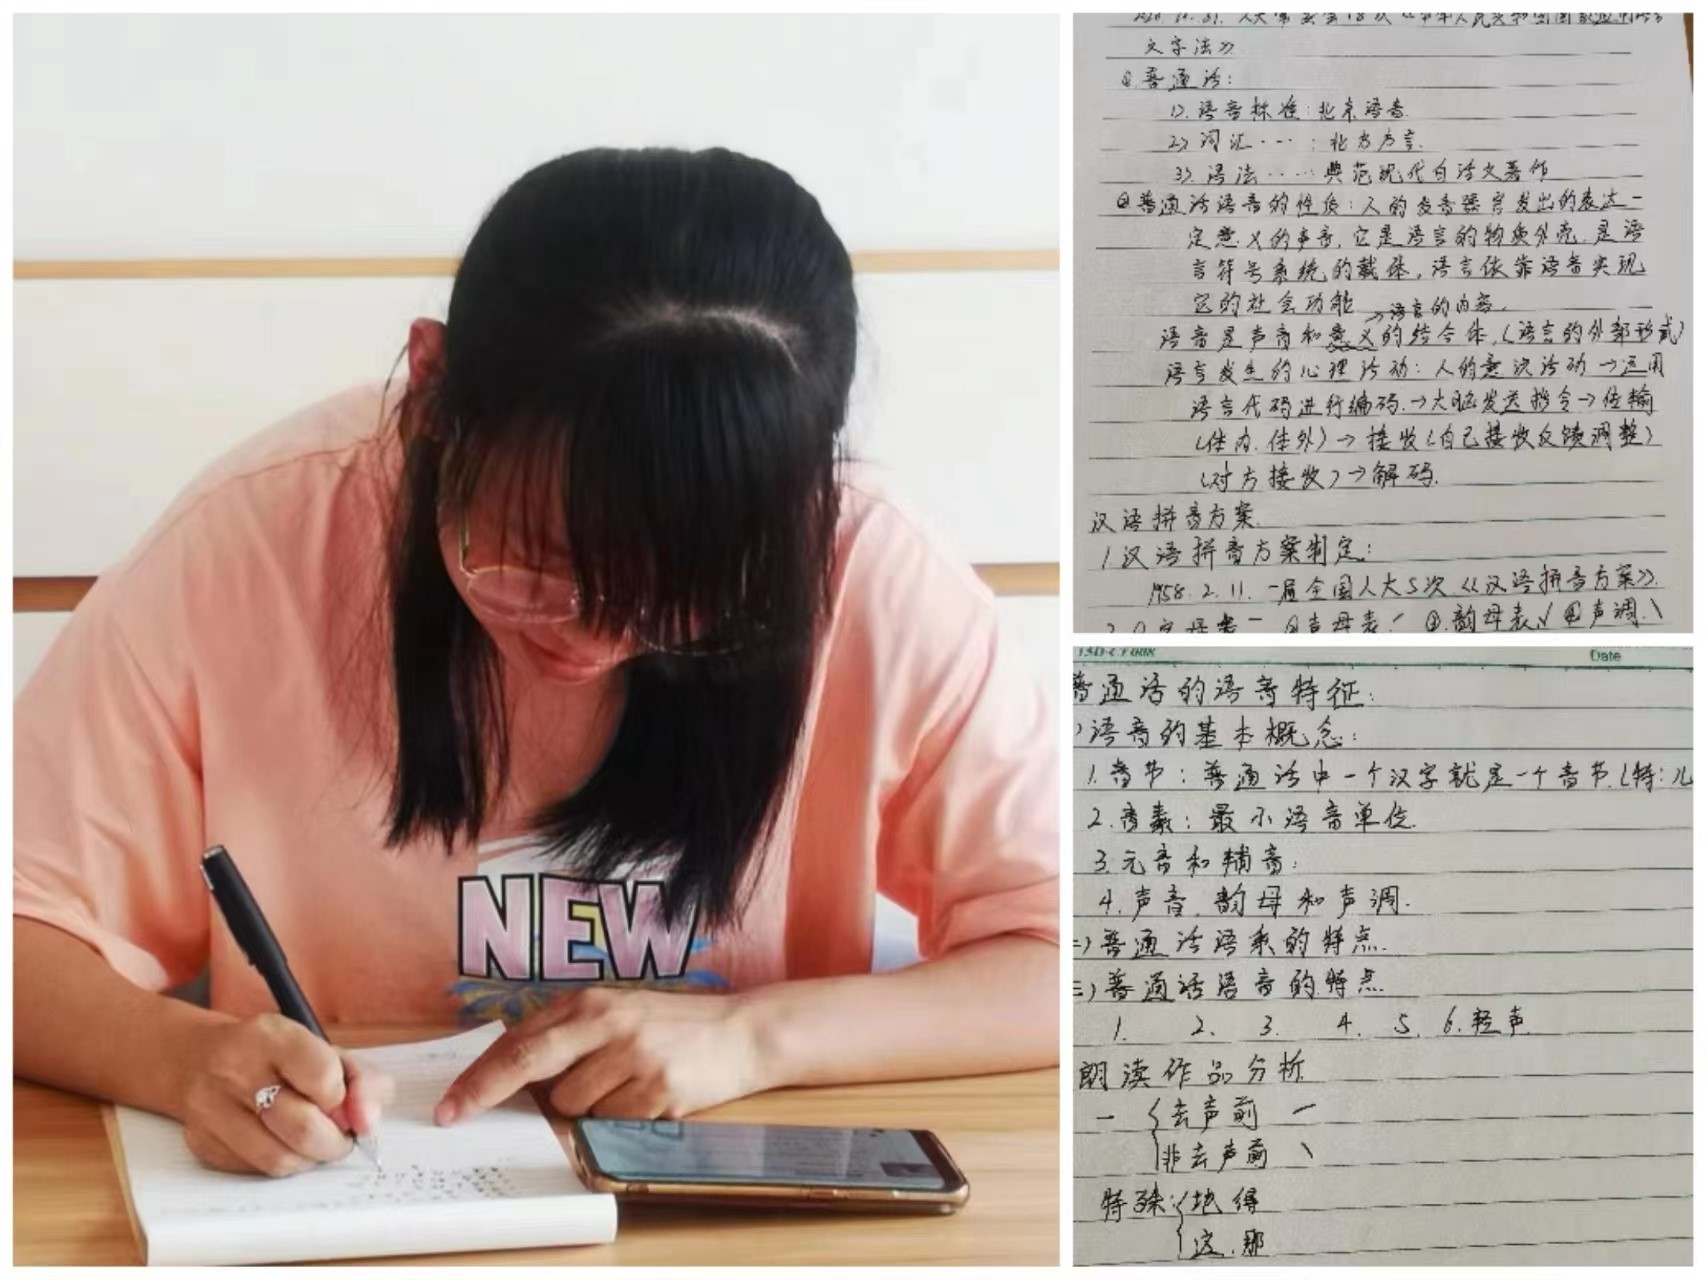 NEW
文字法》
①.普通话:
1).语音标准:北京语音.
2).词汇····:北方方言.
3).语法·····典范现代白话文著作
②普通话语音的性质:人的发音器官发出的表达一
定意义的声音,它是语言的物质外壳,是语
言符号系统的载体,语言依靠语音实现
它的社会功能.
→语言的内容.
语音是声音和意义的结合体.(语言的外部形式)
语言发生的心理活动:人的意识活动→运用
语言代码进行编码.→大脑发送指令→传输
(体内.体外)→接收(自己接收反馈调整)
(对方接收)→解码.
汉语拼音方案.
1.汉语拼音方案制定:
1958.2.11.一届全国人大5次《汉语拼音方案》.
声母表 韵母表 声调
Date
普通话的语音特征:
语音的基本概念:
1.音节:普通话中一个汉字就是一个音节.(特:儿
2.音素:最小语音单位.
3.元音和辅音:
4.声音.韵母和声调.
二)普通话语系的特点.
三)普通话语音的特点
1. 2. 3. 4. 5. 6.轻声.
朗读作品分析
一{去声前 ˊ
非去声前 ˋ
特殊:{地 得
这.那